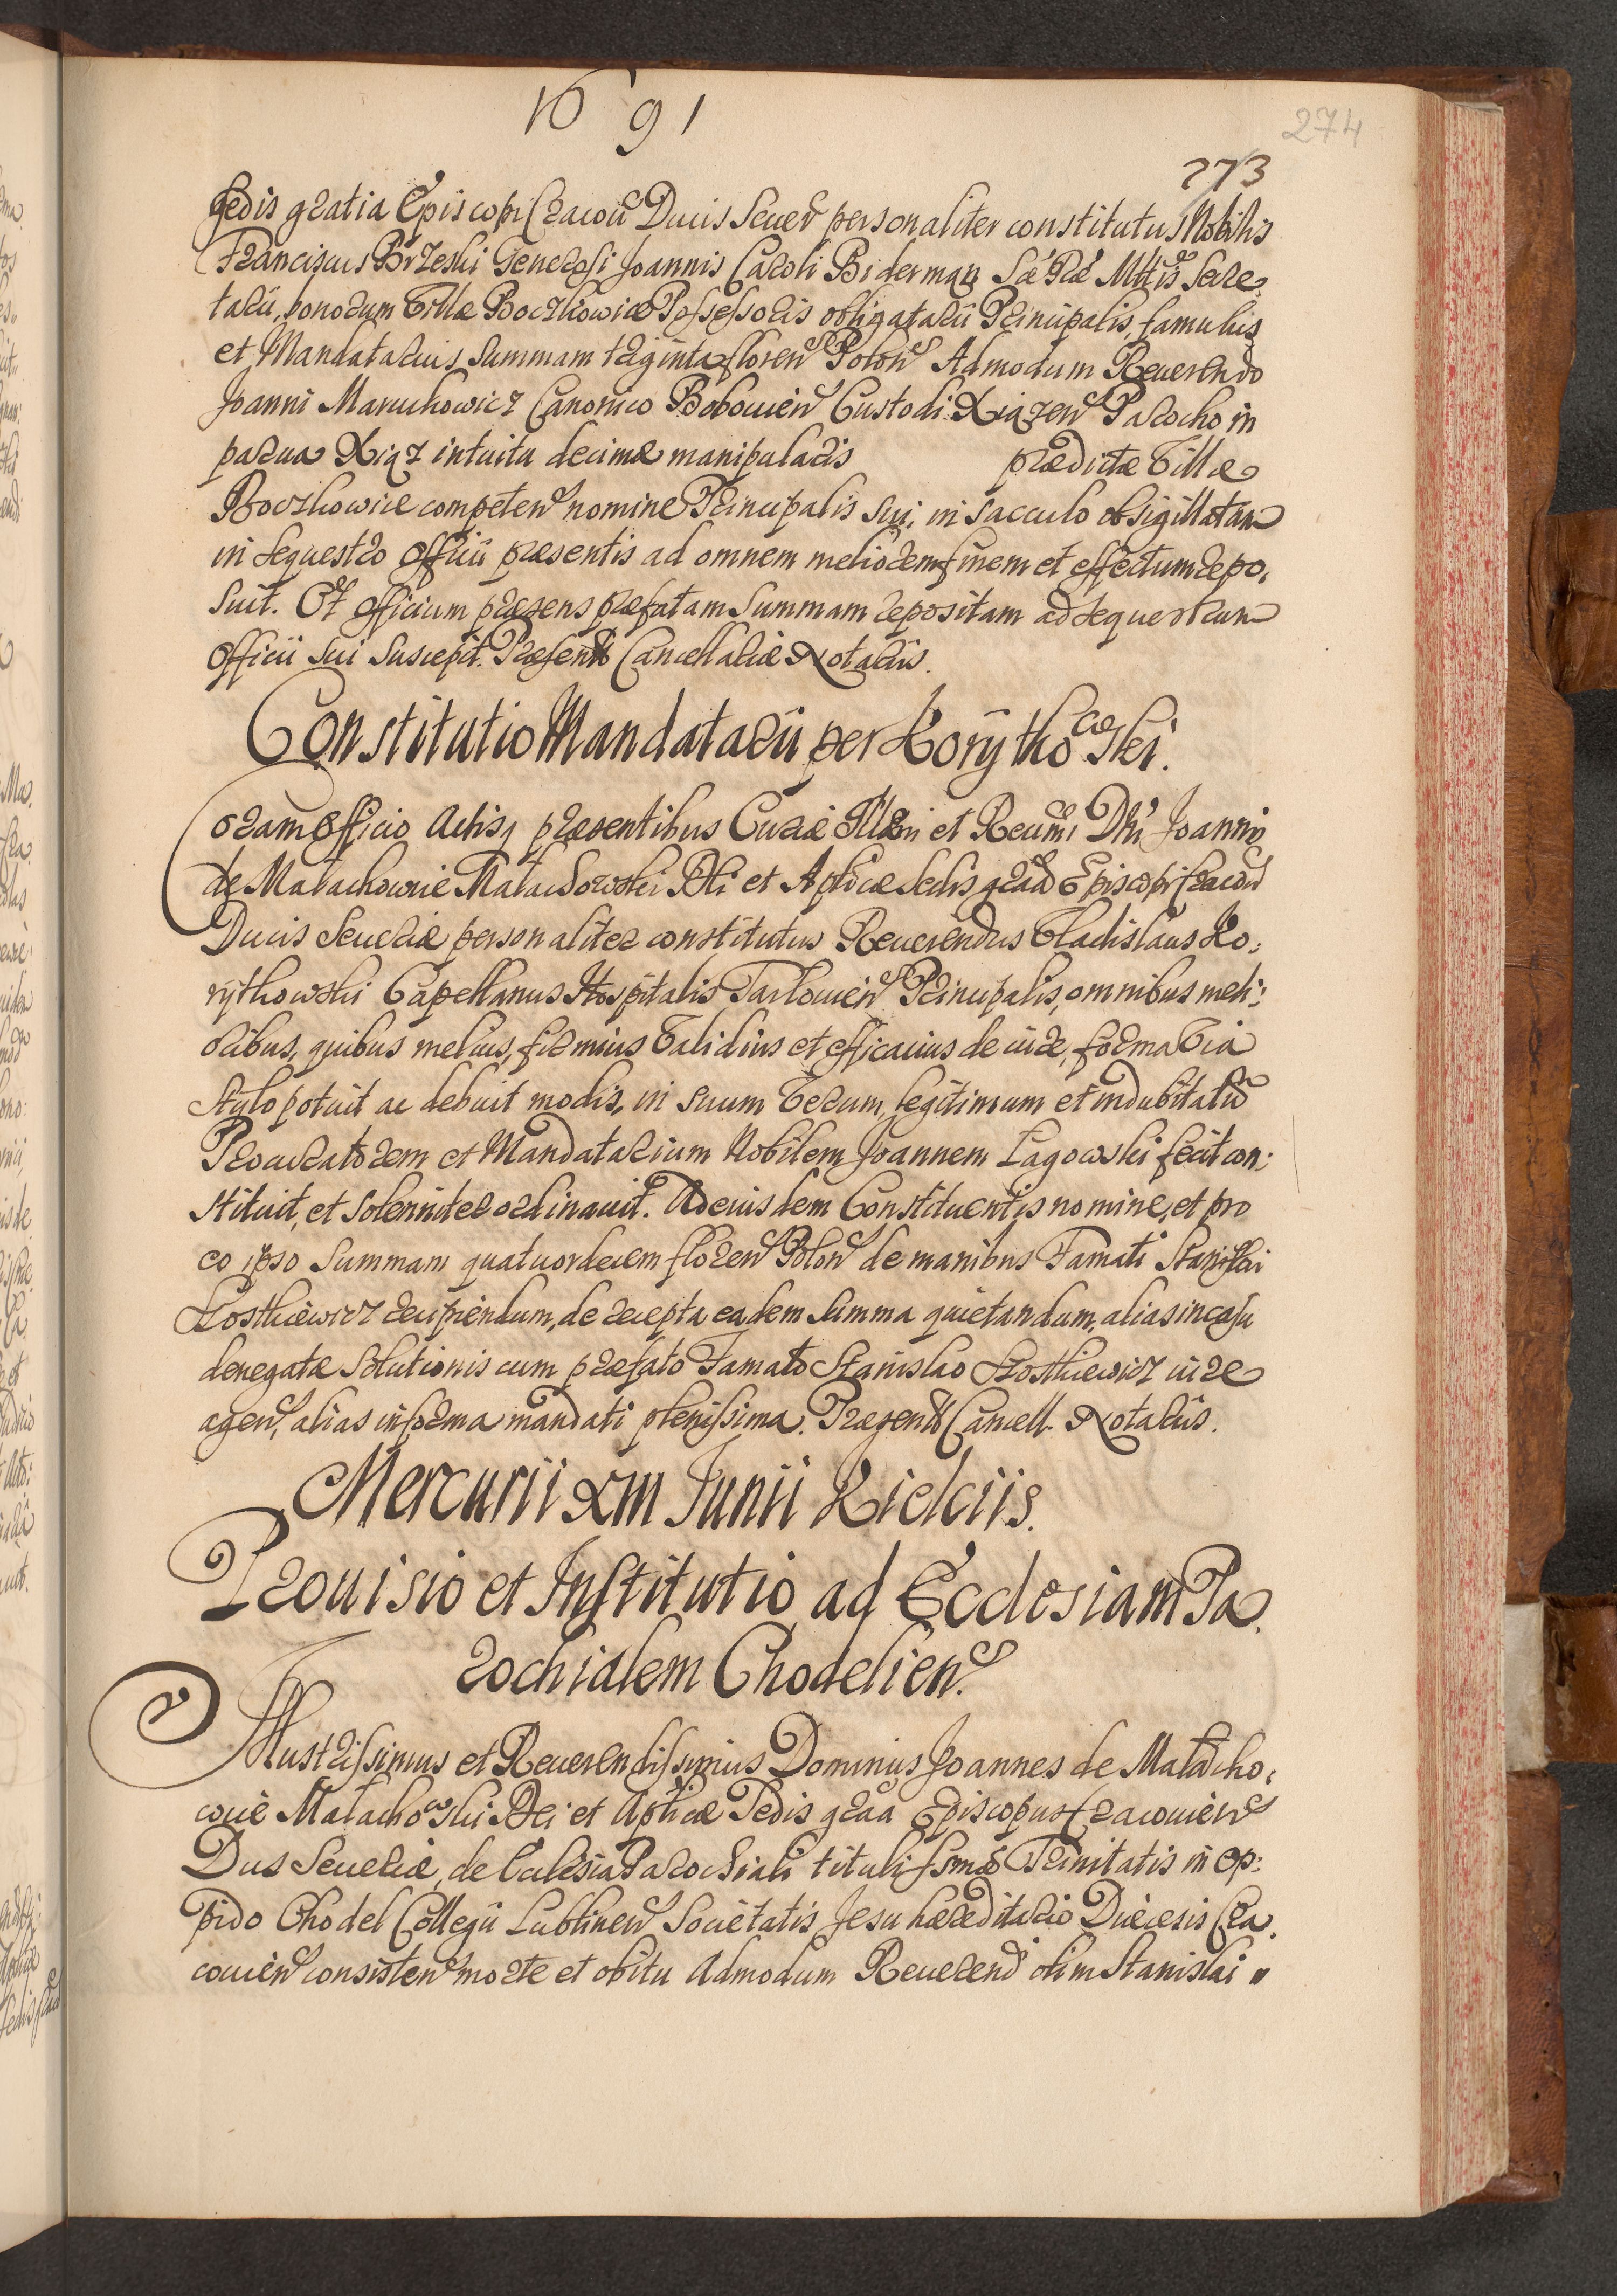 1691
274
273
Sedis gratia Episcopi Cracou Ducis Seuer personaliter constitutus Nobilis
Franciscus Brzeski Generosi Joannis Caroli Biderman Sae Rae Mttis Secre
tarii, bonorum Villae Boczkowice Possessoris obligatarii Principalis, famulus
et Mandatarius summam triginta floren Polon Admodum Reuerendo
Joanni Maruchowicz Canonico Bobouien Custodi Xiązen Parocho in
parua Xiąz intuitu decimae manipularis praedictae Villae
Boczkowice competen nomine Principalis sui, in sacculo obsigillatam
in sequestro officii praesentis ad omnem meliorem finem et effectum repo,
suit. Et officium praesens praefatam summam repositam ad sequestrum
officii sui suscepit. Praesentib Cancellariae Notariis.
Constitutio Mandatarii per Korythowski.
Coram officio Actisq praesentibus Curiae Illmi et Reumi Dni Joannis
de Małachowice Małachowski Dei et Aplicae Sedis graa Episcopi Cracou
Ducis Seueriae personaliter constitutus Reuerendus Vladislaus Ko,
rythowski Capellanus Hospitalis Tarlouien Principalis, omnibus meli:
oribus, quibus melius, firmius validius et efficacius de iure, forma via
stylo potuit ac debuit modis, in suum verum, legitimum et indubitatu
Procuratorem et Mandatarium Nobilem Joannem Łagowski fecit con:
stituit, et solenniter ordinauit. Ad eiusdem Constituentis nomine, et pro
eo ipso summam quatuordecem floren Polon de manibus Famati Stanislai
Kosthiewicz recipiendum, de recepta eadem summa quietandum, alias in casu
denegatae solutionis cum praefato Famato Stanislao Kosthiewicz iure
agen, alias in forma mandati plenissima. Praesentib Cancell. Notariis.
Mercurii XIII Junii Kielciis.
Prouisio et Institutio ad Ecclesiam Pa
rochialem Chodelien.
Illustrissimus et Reuerendissimus Dominus Joannes de Małacho,
wice Małachowski Dei et Aplicae Sedis graa Episcopus Cracouien
Dux Seueriae, de Ecclesia Parochiali tituli ssmae Trinitatis in op:
pido Chodel Collegii Lublinen Societatis Jesu haereditario Diecesis Cra,
couien consisten morte et obitu Admodum Reuerend olim Stanislai